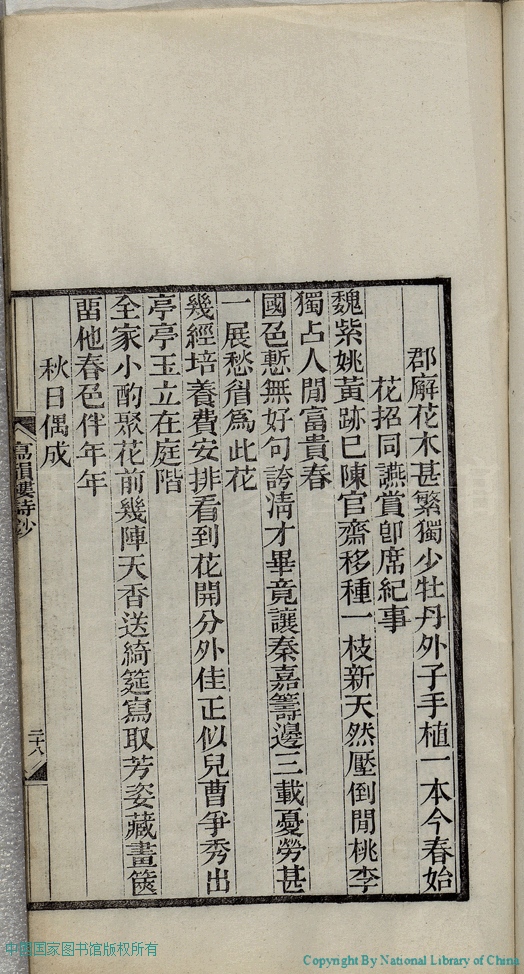 郡廨花木甚繁獨少牡丹外子手植一本今春始
花招同讌賞卽席紀事
魏紫姚黃跡巳陳官齋移種一枝新天然壓倒閒桃李
獨占人閒富貴春
國色慙無好句誇淸才畢竟讓秦嘉籌邊三載憂勞甚
一展愁眉爲此花
幾經培養費安排看到花開分外佳正似兒曹爭秀出
亭亭玉立在庭階
全家小酌聚花前幾陣天香送綺筵寫取芳姿藏畫篋
畱他春色伴年年
秋日偶成
寫韻樓詩鈔
二十八
中国国家图书馆版权所有
Copyright By National Library of China